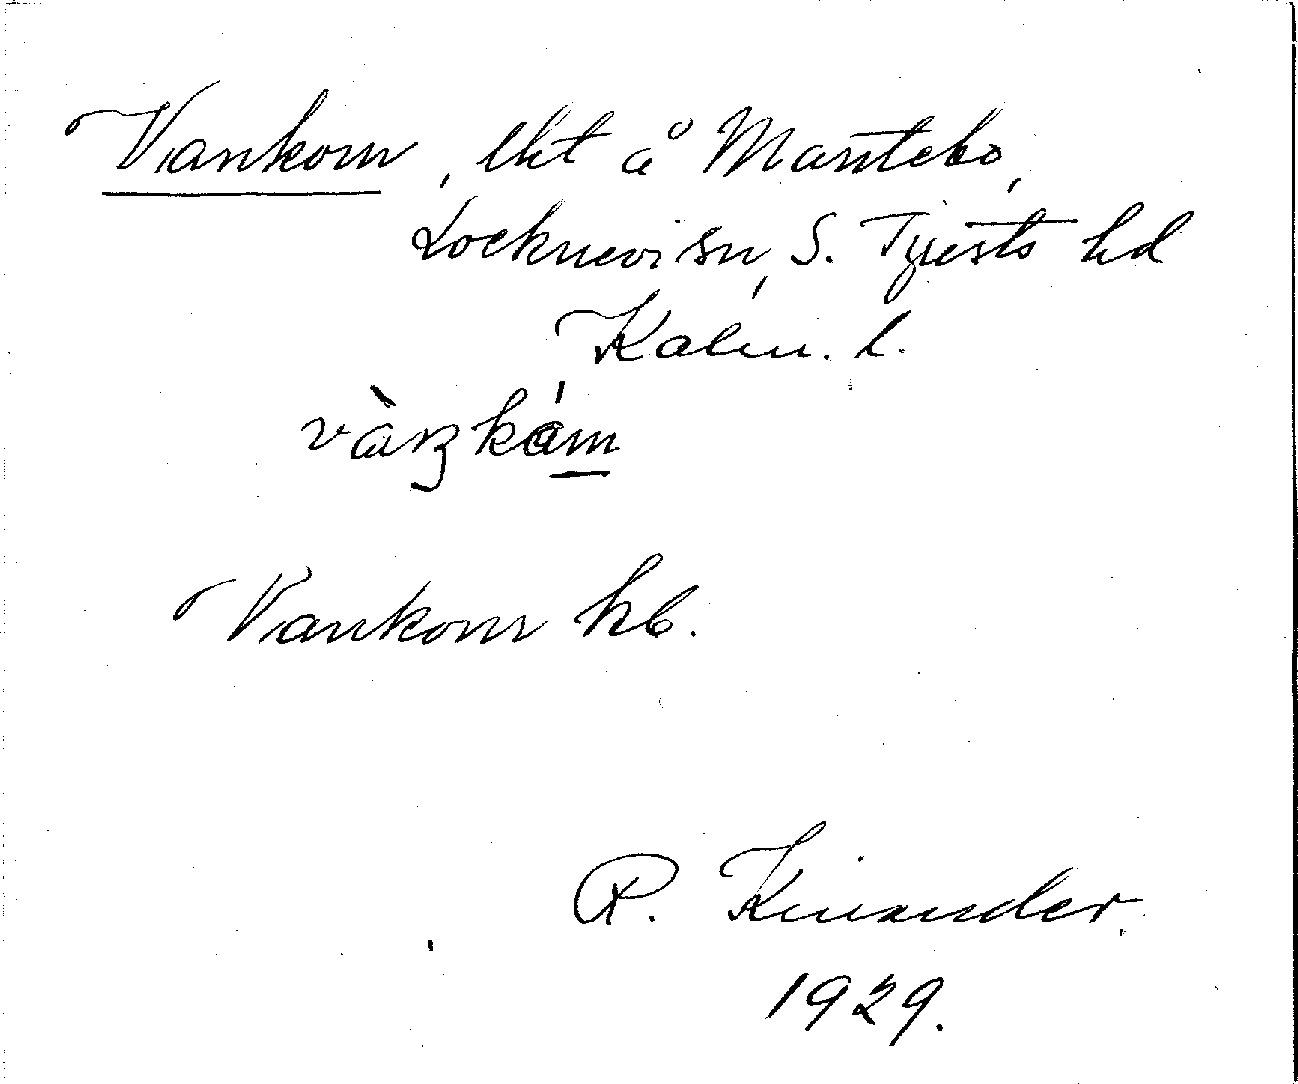 Vankom, lht å Mantebo,
Locknevi sn, S. Tjusts hd
Kalm. l.
Vankom hb.
R. Kinander
1929.